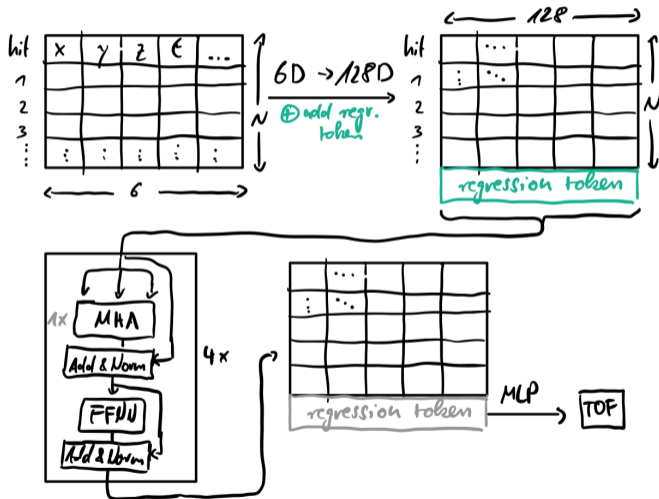 hit x y z t ...
1
2
3
⋮ ⋮ ⋮ ⋮ ⋮
N
6
6D → 128D
⊕ add regr.
token
128
hit ...
1 ⋮ ⋱
2
3
⋮
N
regression token
1x MHA
Add & Norm
FFNN
Add & Norm
4x
...
⋮ ⋱
regression token
MLP
TOF